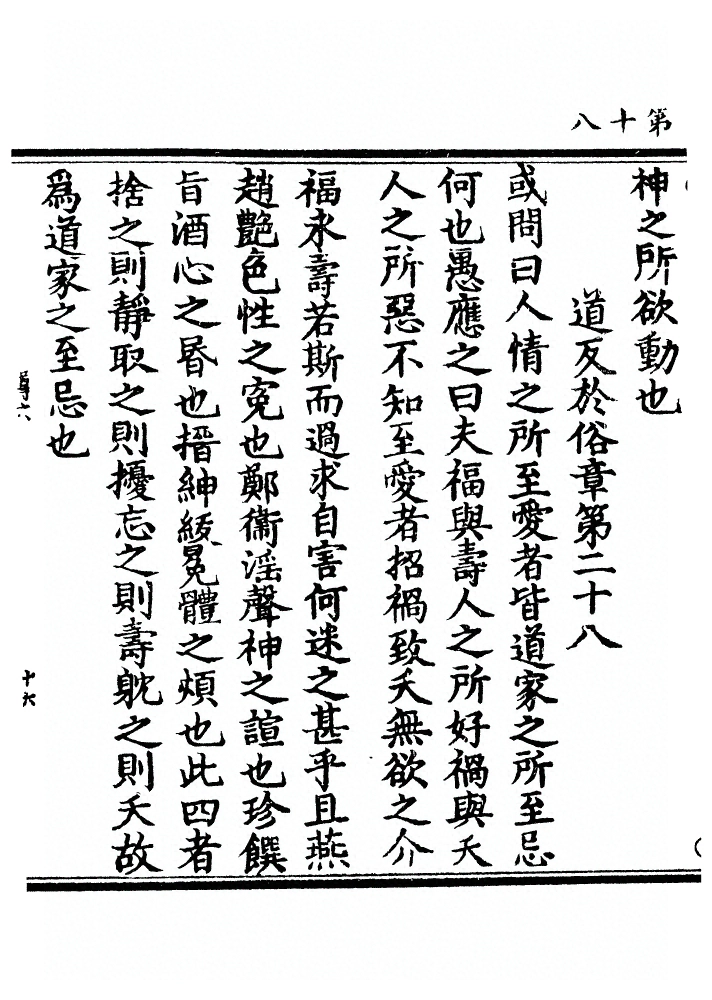 第十八
神之所欲動也
道反於俗章第二十八
或問曰人情之所至愛者皆道家之所至忌
何也愚應之曰夫福與壽人之所好禍與夭
人之所惡不知至愛者招禍致夭無欲之介
福永壽若斯而過求自害何迷之甚乎且燕
趙艷色性之寃也鄭衞滛聲神之諠也珍饌
旨酒心之昬也搢紳綬冕體之煩也此四者
捨之則靜取之則擾忘之則壽躭之則夭故
爲道家之至忌也
尊六
十六